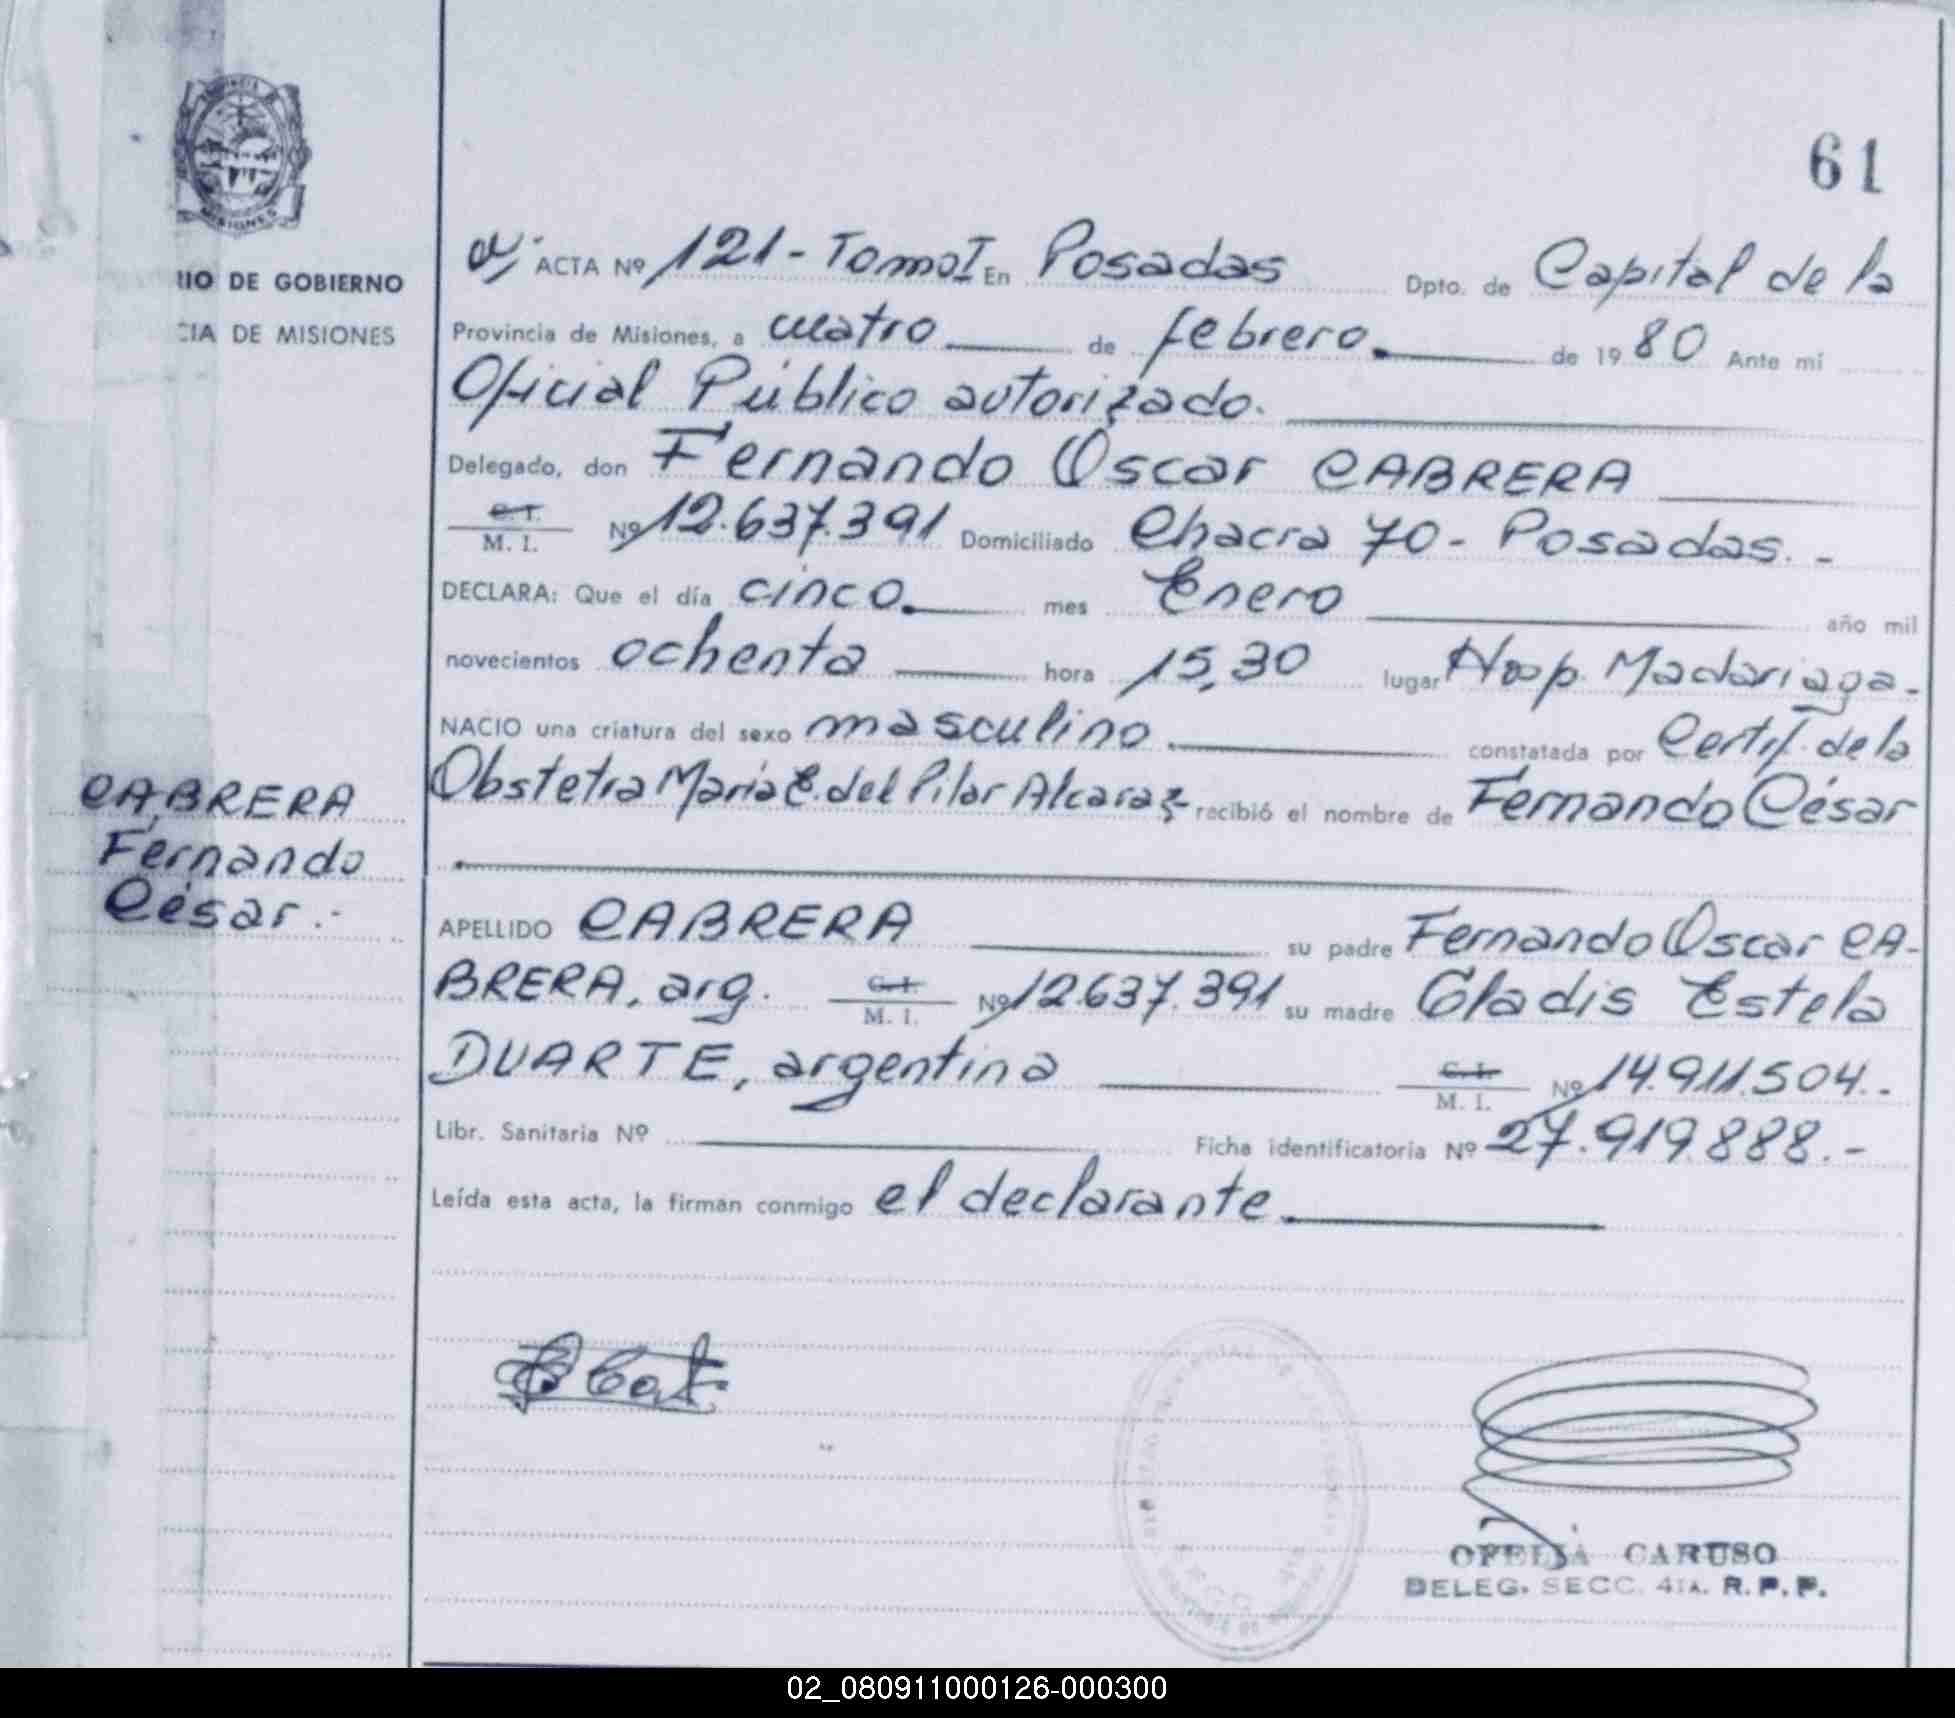 61
MISIONES
IIO DE GOBIERNO
CIA DE MISIONES
ACTA Nº 121 - Tomo I En Posadas Dpto. de Capital de la
Provincia de Misiones, a cuatro de febrero. de 1980 Ante mi
Oficial Público autorizado.
Delegado, don Fernando Oscar CABRERA
C. I.
M. I. Nº 12.637.391 Domiciliado Chacra 70 - Posadas. -
DECLARA: Que el día cinco. mes Enero año mil
novecientos ochenta hora 15,30 lugar Hosp. Madariaga.
NACIO una criatura del sexo masculino constatada por Certif. de la
Obstetra María E. del Pilar Alcaraz recibió el nombre de Fernando César
CABRERA
Fernando
César.-
APELLIDO CABRERA su padre Fernando Oscar CA-
BRERA, arg. C. I. M. I. Nº 12.637.391 su madre Gladis Estela
DUARTE, argentina C. I. M. I. Nº 14.911.504.-
Libr. Sanitaria Nº Ficha identificatoria Nº 27.919.888.-
Leída esta acta, la firman conmigo el declarante
OFELIA CARUSO
DELEG. SECC. 4TA. R. P. P.
02_080911000126-000300